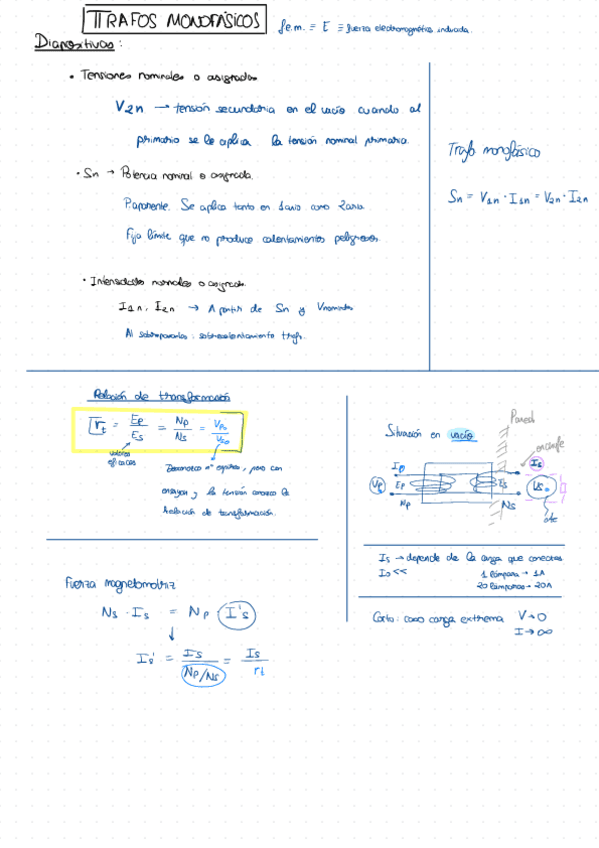 TRAFOS MONOFÁSICOS
f.e.m. ≡ E ≡ fuerza electromagnética inducida.
Diapositivas:
• Tensiones nominales o asignadas
V2n → tensión secundaria en el vacío cuando al
primario se le aplica la tensión nominal primaria.
• Sn → Potencia nominal o asignada.
P.aparente. Se aplica tanto en 1ario como 2ario.
Fija límite que no produce calentamientos peligrosos.
• Intensidades nominales o asignadas.
I1n, I2n → A partir de Sn y Vnominales
Al sobrepasarlos: sobrecalentamiento trafo.
Trafo monofásico
Sn = V1n · I1n = V2n · I2n
Relación de transformación
rt = Ep/Es = Np/Ns = Vpo/Vso
valores eficaces
nº espiras, pero con
ensayos y la tensión conozco la
Relación de transformación.
Fuerza magnetomotriz
Ns · Is = Np · I's
Is' = Is/(Np/Ns) = Is/rt
Situación en vacío
Pared
enchufe
I0
Is
Vp
Ep
Es
Np
Ns
Is → depende de la carga que conectes
I0 <<
1 lámpara → 1A
20 lámparas → 20A
Corto: caso carga extrema
V→0
I→∞